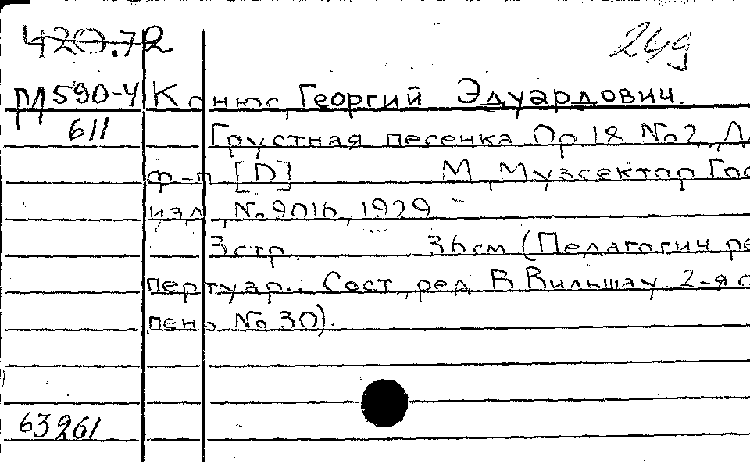 420.72
249
М 590-4 Конюс, Георгий Эдуардович.
611
Грустная песенка Ор 18 No2, Д
ф-п [D] М, Музсектор Гос
изд, No 9016, 1929
3стр 36см (Педагогич ре
пертуар.. Сост, ред В Вильшау 2-я с
пень No 30).
63261